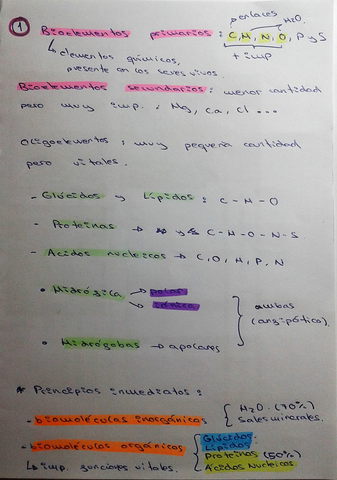 por enlaces H2O.
① Bioelementos primarios : C, H, N, O, P y S
↳ elementos químicos, + imp
presente en los seres vivos.
Bioelementos secundarios : menor cantidad
pero muy imp. : Mg, Ca, Cl ...
Oligoelementos : muy pequeña cantidad
pero vitales.
- Glúcidos y Lípidos : C - H - O
- Proteínas → C - H - O - N - S
- Acidos nucleicos → C, O, H, P, N
• Hidrófica → polar
→ iónico
ambas
(anfipótico).
• Hidrófobas → apolares
* Principios inmediatos :
- biomoléculas inorgánicas { H2O (70%)
Sales minerales.
- biomoléculas orgánicas { Glúcidos
Lípidos
Proteínas (50%)
Acidos Nucleicos
↳ imp. funciones vitales.